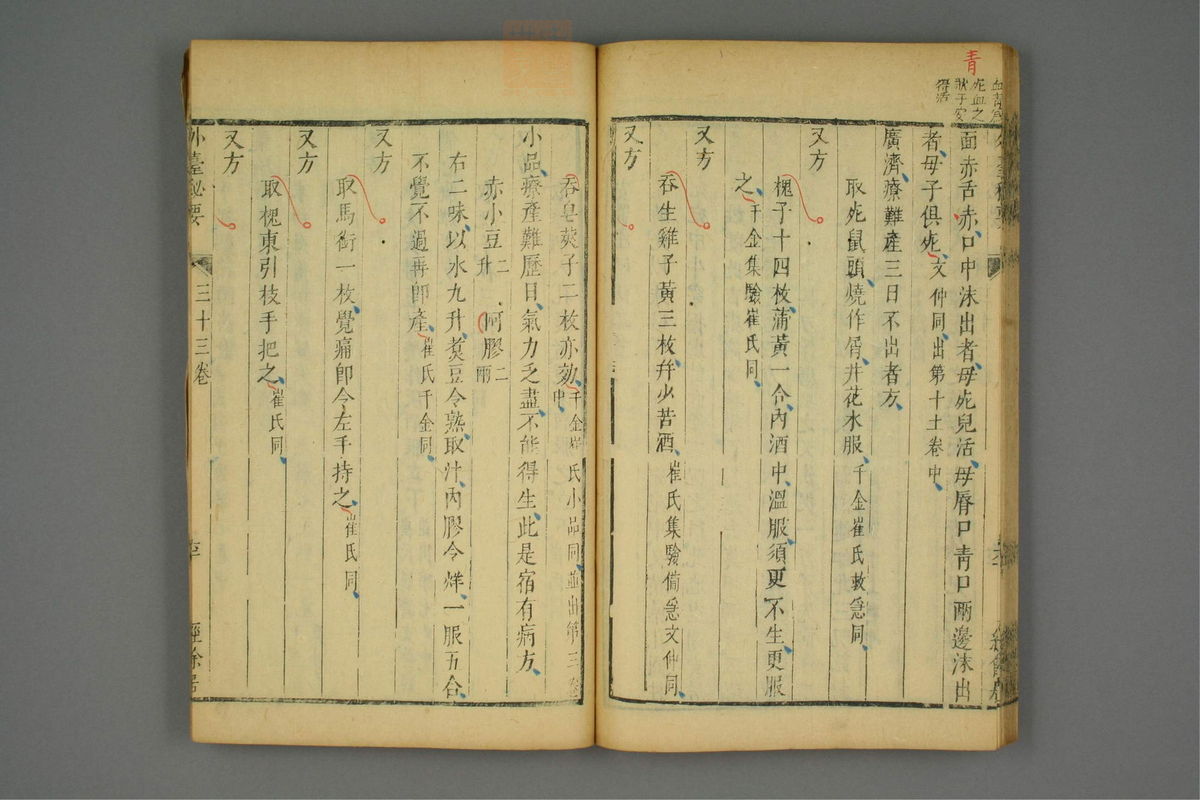 青
死血之
得活
面赤舌赤口中沫出者母死兒活母脣口青口兩邊沫出
者母子俱死文仲同出第十二卷中
廣濟療難產三日不出者方
取死鼠頭燒作屑井花水服千金崔氏救急同
又方
槐子十四枚蒲黃一合內酒中溫服須更不生更服
之千金集驗崔氏同
又方
吞生雞子黃三枚并少苦酒崔氏集驗備急文仲同
又方
吞皂莢子二枚亦效千金崔氏小品同並出第三卷中
小品療產難歷日氣力乏盡不能得生此是宿有病方
赤小豆二升 阿膠二兩
右二味以水九升煑豆令熟取汁內膠令烊一服五合
不覺不過再即產崔氏千金同
又方
取馬銜一枚覺痛即令左手持之崔氏同
又方
取槐東引枝手把之崔氏同
又方
外臺祕要
三十三卷
經餘居